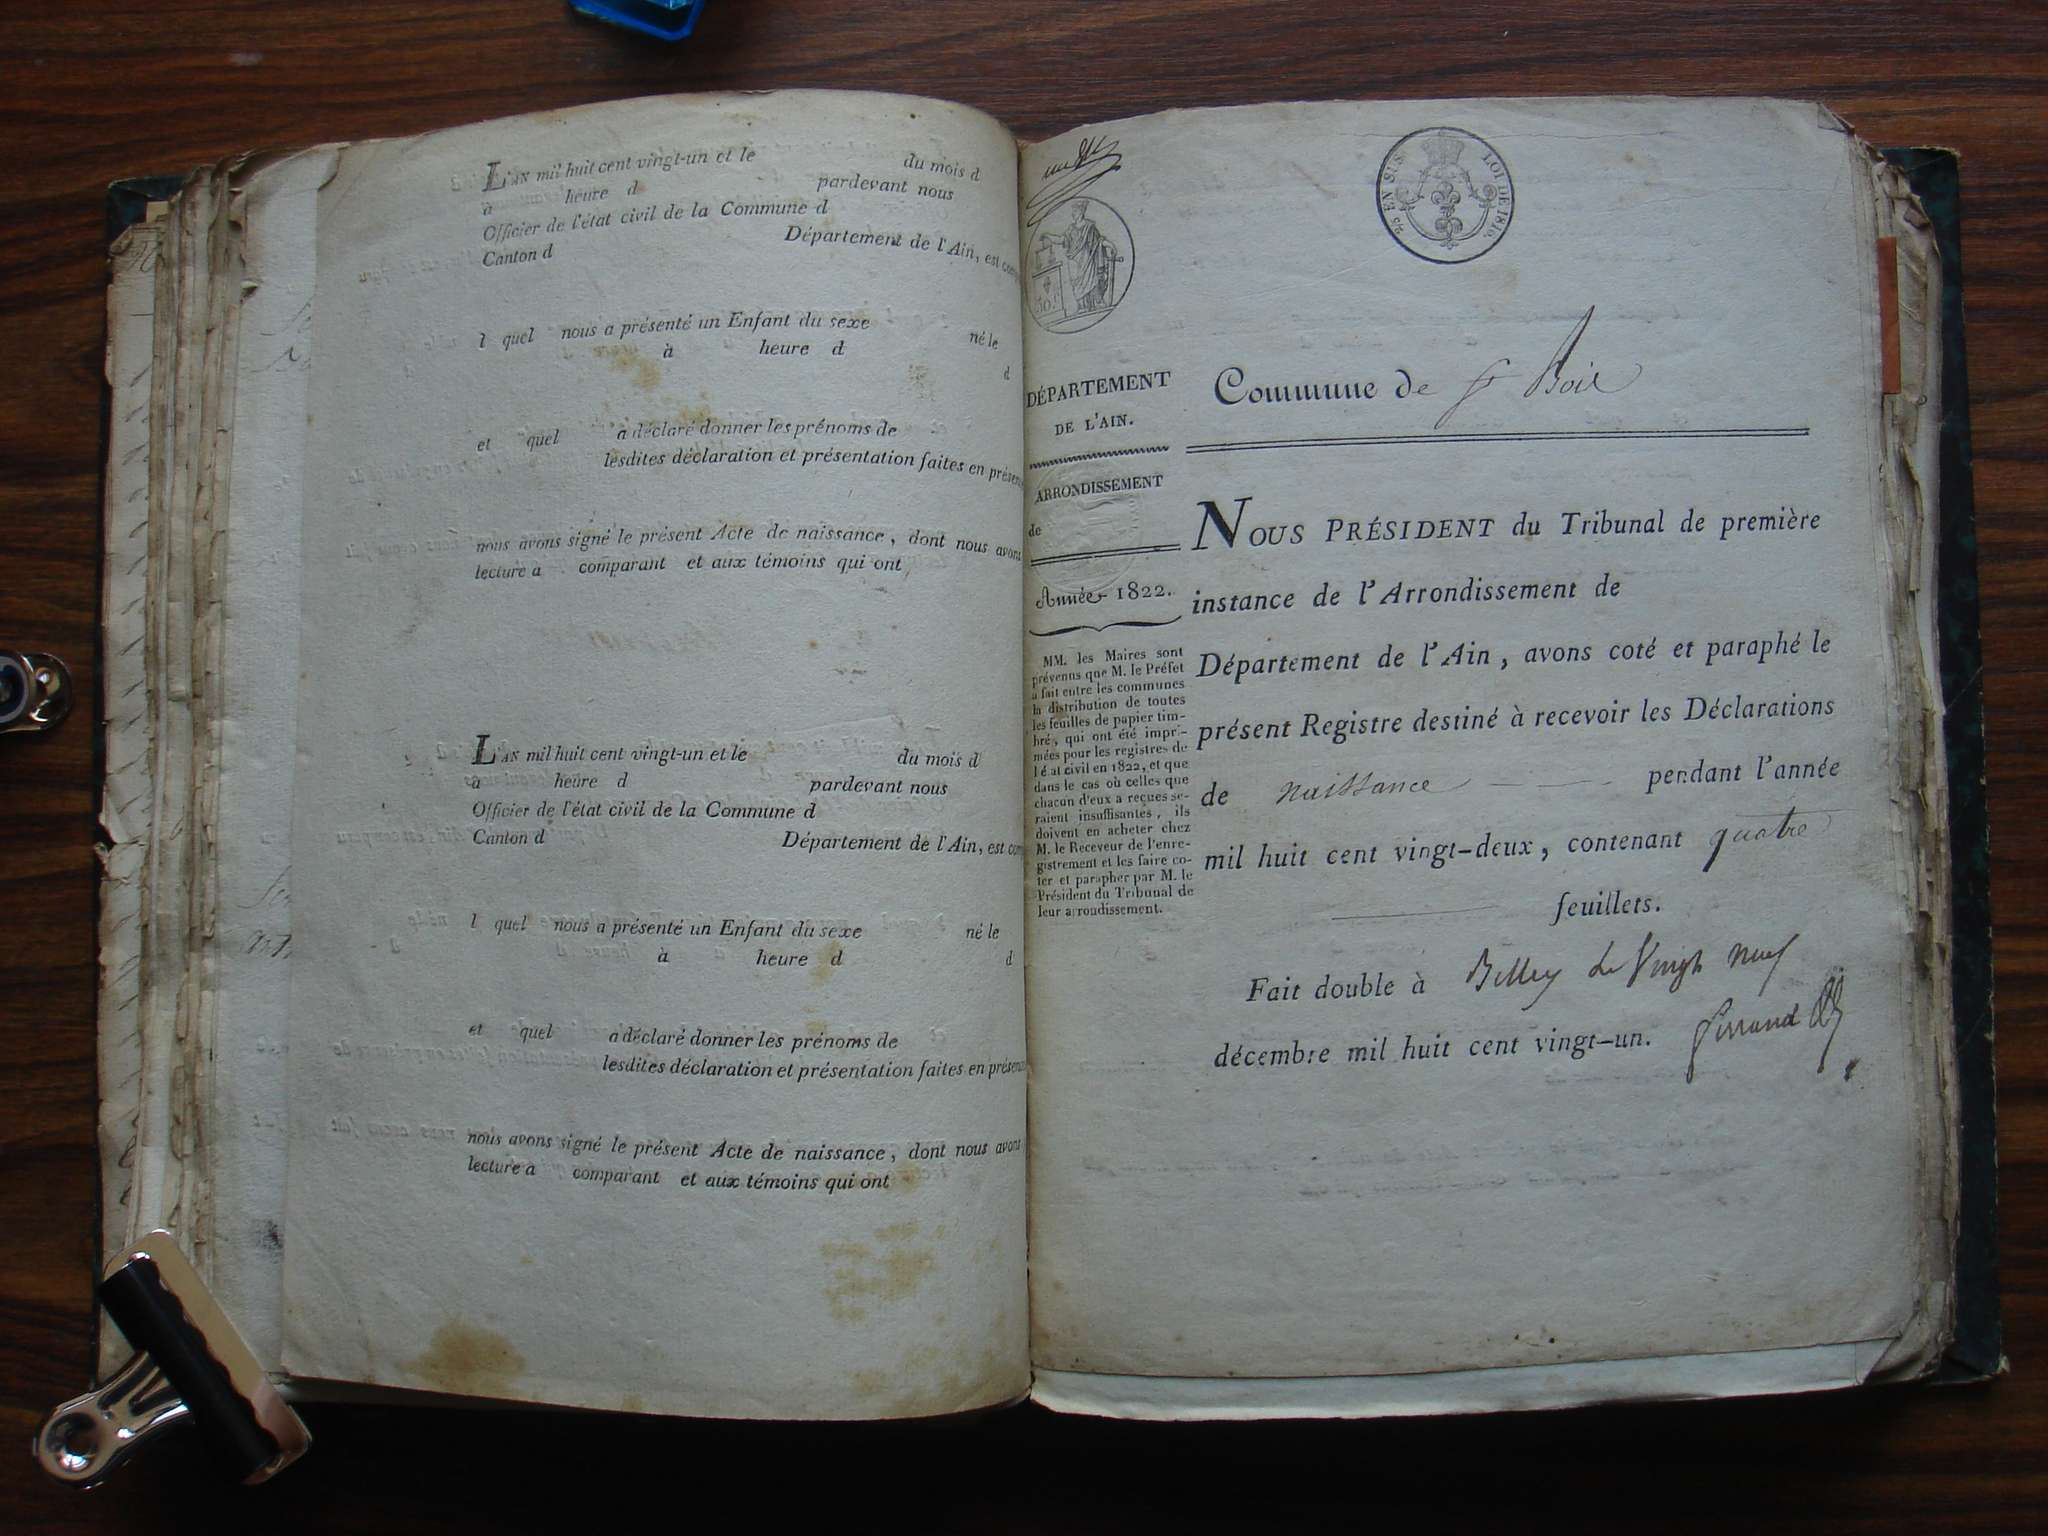 L'AN mil huit cent vingt-un et le du mois d
à heure d pardevant nous
Officier de l'état civil de la Commune d
Canton d Département de l'Ain, est
l quel nous a présenté un Enfant du sexe né le
à heure d d
et quel a déclaré donner les prénoms de
lesdites déclaration et présentation faites en
nous avons signé le présent Acte de naissance, dont nous avons
lecture a comparant et aux témoins qui ont
L'AN mil huit cent vingt-un et le du mois d
à heure d pardevant nous
Officier de l'état civil de la Commune d
Canton d Département de l'Ain, est
l quel nous a présenté un Enfant du sexe né le
à heure d d
et quel a déclaré donner les prénoms de
lesdites déclaration et présentation faites en
nous avons signé le présent Acte de naissance, dont nous avons
lecture a comparant et aux témoins qui ont
2/5 EN SUS. LOI DE 1816.
DÉPARTEMENT
DE L'AIN.
ARRONDISSEMENT
de
Année 1822.
MM. les Maires sont
prévenus que M. le Préfet
a fait entre les communes
la distribution de toutes
les feuilles de papier tim-
bré, qui ont été impri-
mées pour les registres de
l'état civil en 1822, et que
dans le cas où celles que
chacun d'eux a reçues se-
raient insuffisantes, ils
doivent en acheter chez
M. le Receveur de l'enre-
gistrement et les faire co-
ter et parapher par M. le
Président du Tribunal de
leur arrondissement.
Commune de St Bois
NOUS PRÉSIDENT du Tribunal de première
instance de l'Arrondissement de
Département de l'Ain, avons coté et paraphé le
présent Registre destiné à recevoir les Déclarations
de naissance pendant l'année
mil huit cent vingt-deux, contenant quatre
feuillets.
Fait double à Belley le Vingt neuf
décembre mil huit cent vingt-un.